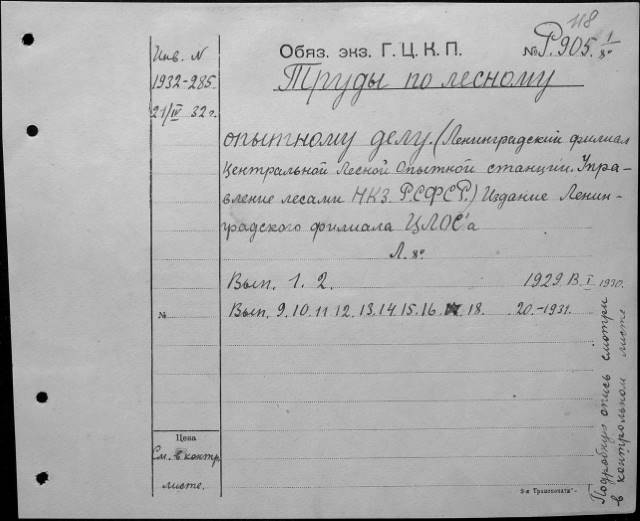 118
Инв. N
1932-285.
21/IV 32 г.
Обяз. экз. Г. Ц. К. П.
№ Р.905. 1/8°
Труды по лесному
опытному делу. (Ленинградский филиал
Центральной Лесной Опытной станции. Упра-
вление лесами НКЗ РСФСР.) Издание Ленин-
градского филиала ЦЛОС'а
Л. 8°
Вып. 1. 2. 1929. В. I 1930.
№ Вып. 9. 10. 11 12. 13. 14. 15. 16. 18. 20. - 1931.
Подробную опись смотри
в контрольном листе
Цена
См. в контр.
листе.
"Транспечати"